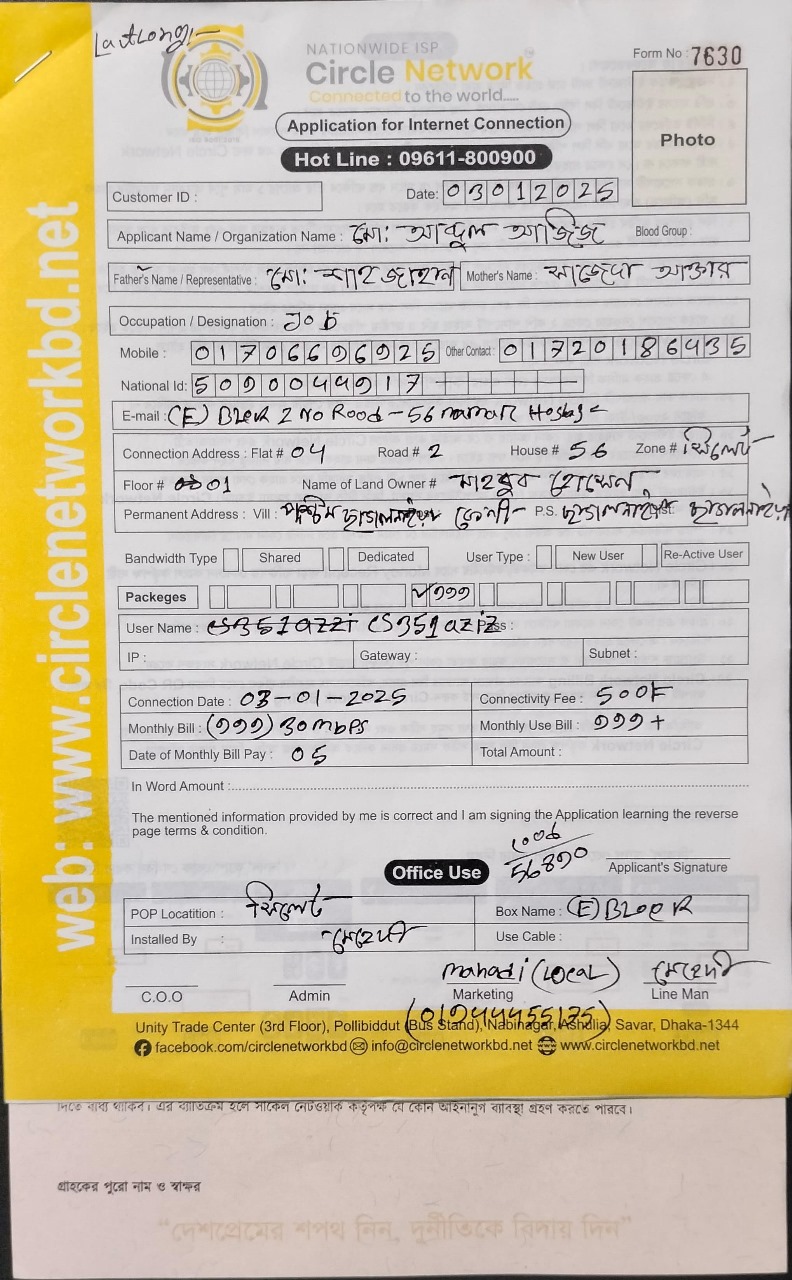 LatLong:-
NATIONWIDE ISP
Circle Network
Connected to the world.....
Form No : 7630
Application for Internet Connection
Hot Line : 09611-800900
Photo
Customer ID :
Date: 03012025
Applicant Name / Organization Name : মো: আব্দুল আজিজ Blood Group :
Father's Name / Representative : মো: শাহজাহান Mother's Name : সাজেদা আক্তার
Occupation / Designation : Job
Mobile : 01706696925 Other Contact : 01720186435
National Id: 5090044917
E-mail : (E) Block 2 No Rood - 56
Connection Address : Flat # 04 Road # 2 House # 56 Zone # সিলেট
Floor # 01 Name of Land Owner # মাহবুব হোসেন
Permanent Address : Vill : পশ্চিম ছাগলনাইয়া ফেনী- P.S. ছাগলনাইয়া Dist: ছাগলনাইয়া
Bandwidth Type Shared Dedicated User Type : New User Re-Active User
Packeges ✓999
User Name : cs351azzi cs351aziz Pass :
IP : Gateway : Subnet :
Connection Date : 03-01-2025 Connectivity Fee : 500৳
Monthly Bill : (999) 30mbps Monthly Use Bill : 999+
Date of Monthly Bill Pay : 05 Total Amount :
In Word Amount :
The mentioned information provided by me is correct and I am signing the Application learning the reverse
page terms & condition.
56890
Office Use
Applicant's Signature
POP Locatition : সিলেট Box Name : (E) Block
Installed By : মেহেদী Use Cable :
mahadi (Local) মেহেদী
C.O.O Admin Marketing Line Man
(01944455175)
Unity Trade Center (3rd Floor), Pollibiddut (Bus Stand), Nabinagar, Ashulia, Savar, Dhaka-1344
facebook.com/circlenetworkbd info@circlenetworkbd.net www.circlenetworkbd.net
web: www.circlenetworkbd.net
দিতে বাধ্য থাকিব। এর ব্যতিক্রম হলে সার্কেল নেটওয়ার্ক কর্তৃপক্ষ যে কোন আইনানুগ ব্যবস্থা গ্রহণ করতে পারবে।
গ্রাহকের পুরো নাম ও স্বাক্ষর
"দেশপ্রেমের শপথ নিন, দুর্নীতিকে বিদায় দিন"